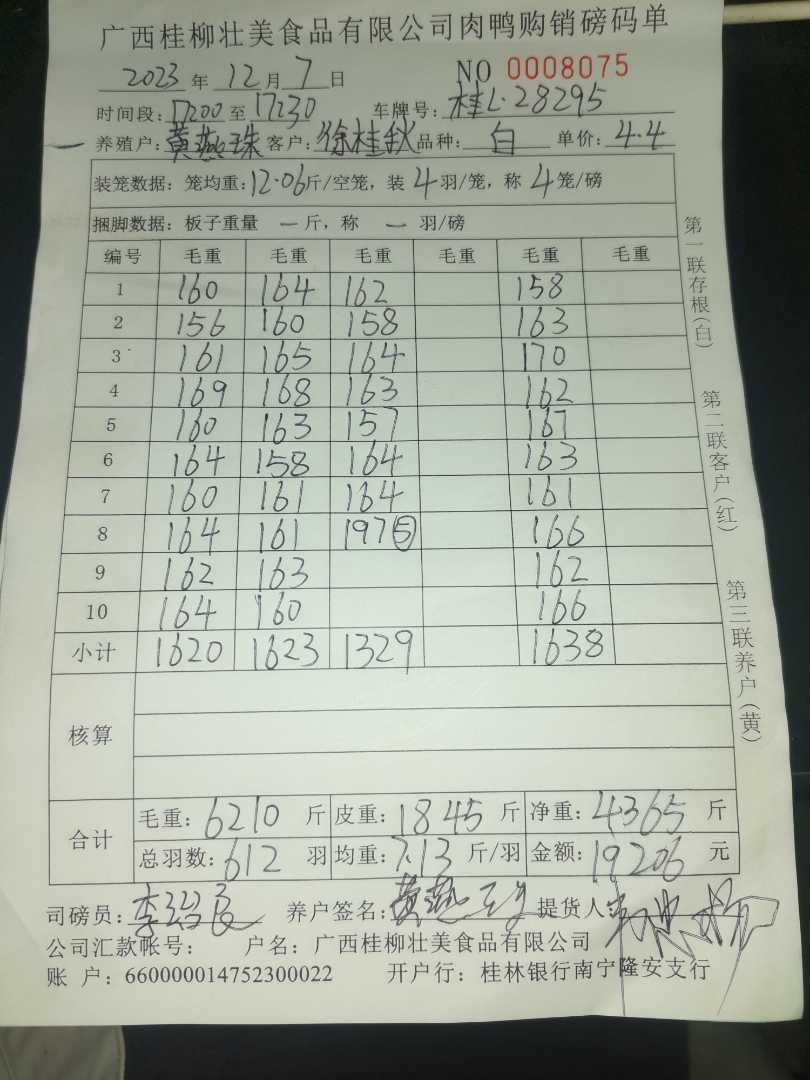 广西桂柳壮美食品有限公司肉鸭购销磅码单
2023 年 12 月 7 日 NO 0008075
时间段: 17200 至 17230 车牌号: 桂L·28295
养殖户: 黄燕珠 客户: 徐桂秋 品种: 白 单价: 4.4
装笼数据: 笼均重: 12.06 斤/空笼, 装 4 羽/笼, 称 4 笼/磅
捆脚数据: 板子重量 一 斤, 称 一 羽/磅
编号 毛重 毛重 毛重 毛重 毛重 毛重
1 160 164 162 158
2 156 160 158 163
3 161 165 164 170
4 169 168 163 162
5 160 163 157 167
6 164 158 164 163
7 160 161 164 161
8 164 161 197⑤ 166
9 162 163 162
10 164 160 166
小计 1620 1623 1329 1638
核算
合计 毛重: 6210 斤 皮重: 1845 斤 净重: 4365 斤
总羽数: 612 羽 均重: 7.13 斤/羽 金额: 19206 元
司磅员: 养户签名: 黄燕 提货人:
公司汇款帐号: 户名: 广西桂柳壮美食品有限公司
账 户: 660000014752300022 开户行: 桂林银行南宁隆安支行
第一联存根(白)
第二联客户(红)
第三联养户(黄)